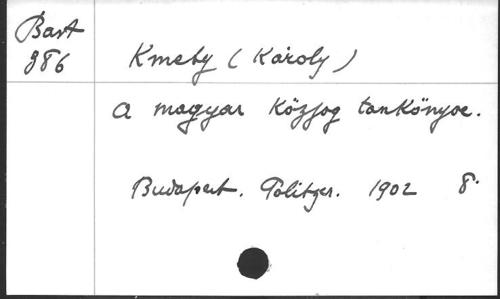 Bart
386
Kmety (Károly)
A magyar közjog tankönyve.
Budapest. Politzer. 1902 8.